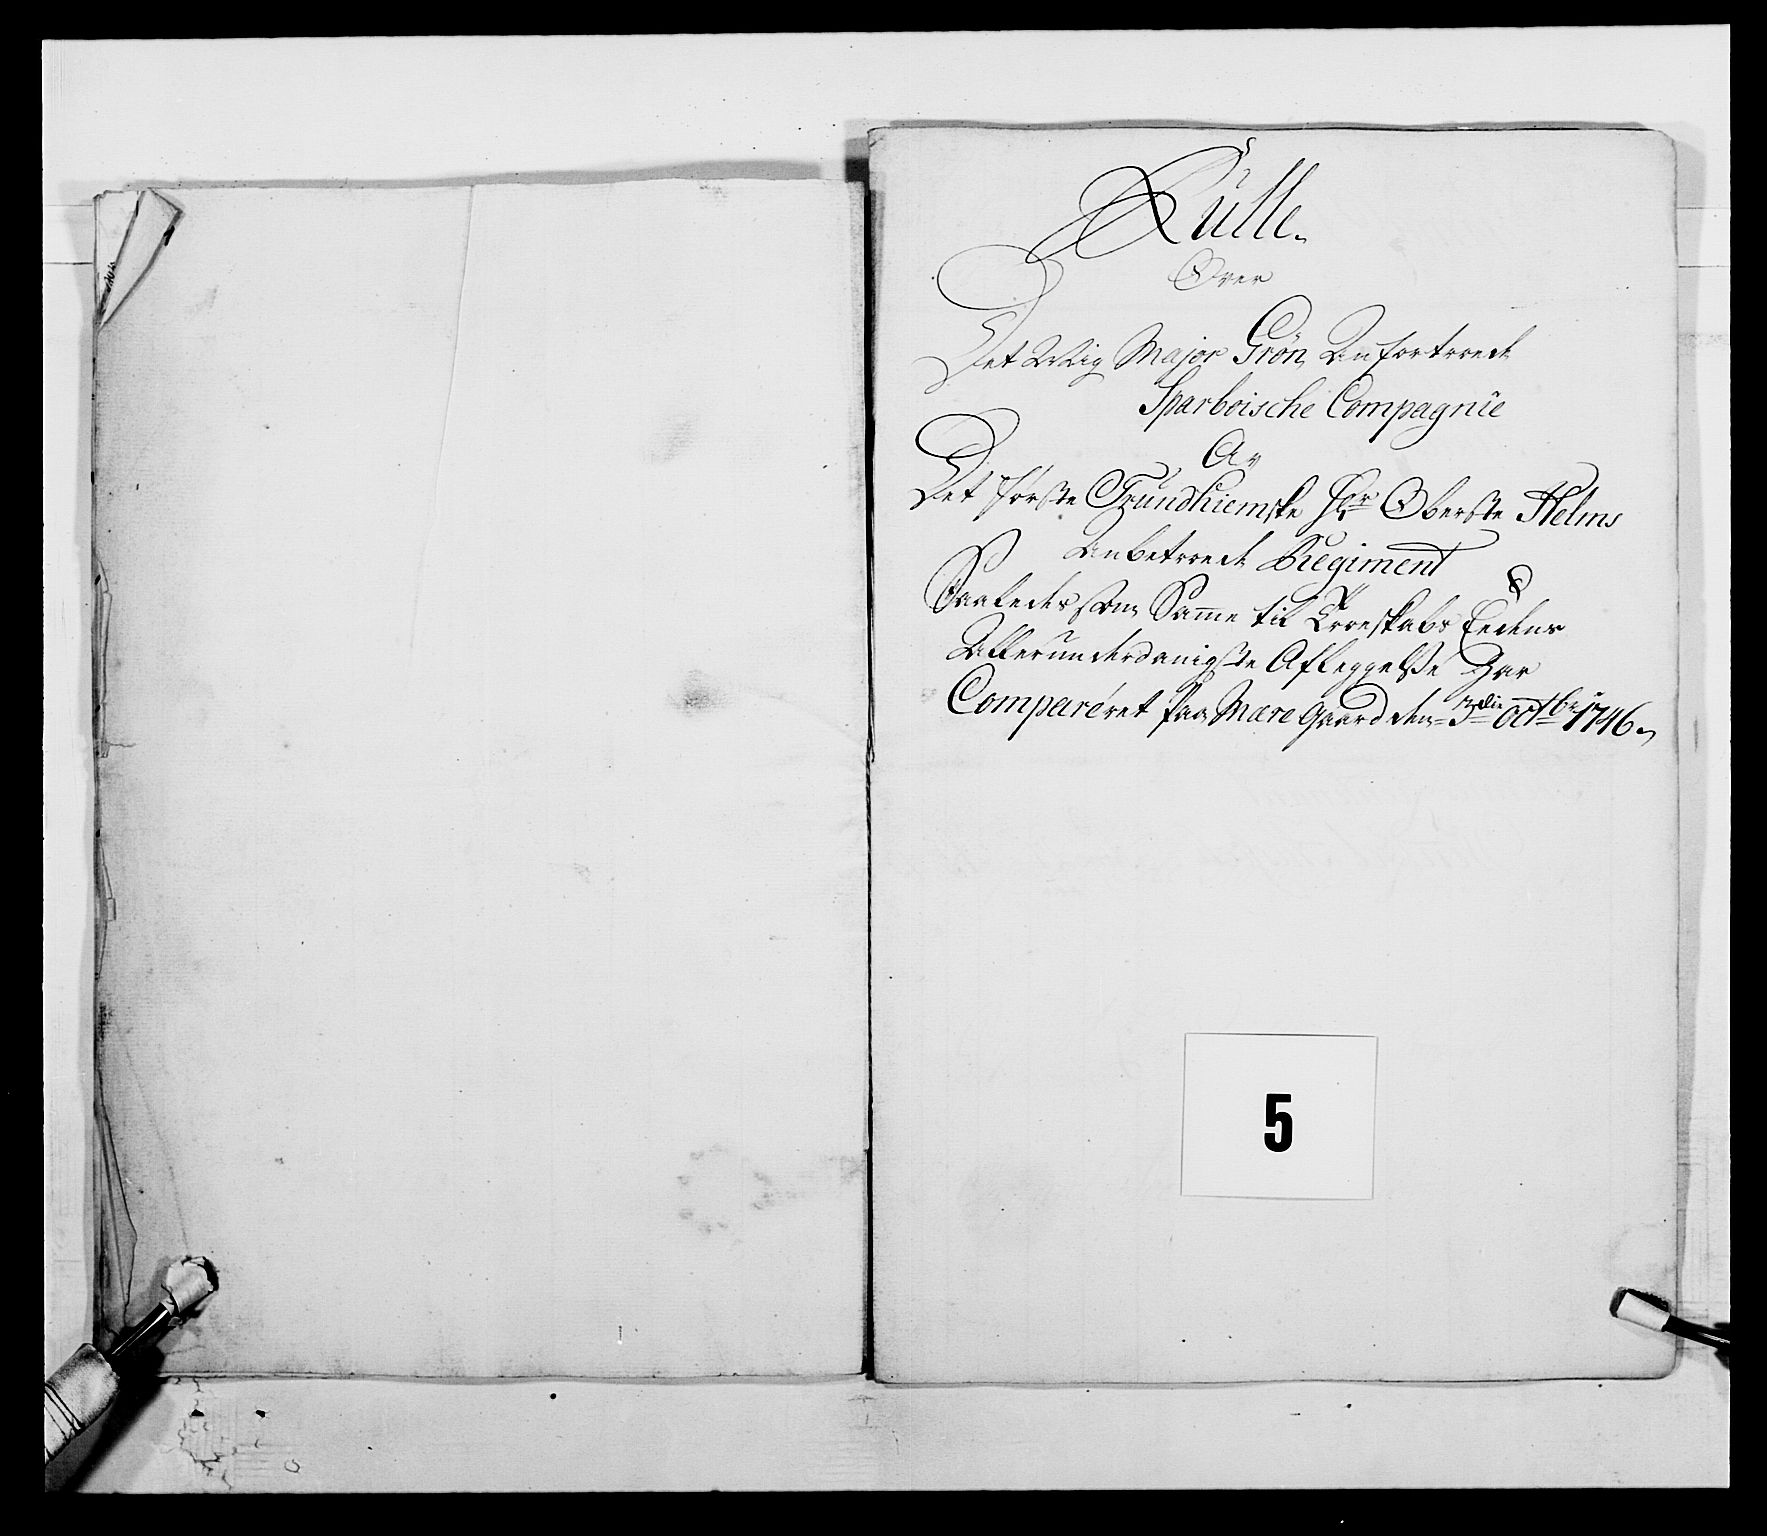 Rulle.
Over
Det Mig Major Grøn Anfortroede
Sparboische Compagnie
Av
Det første Trundhiemske Hr Oberste Helms
Anbetroede Regiment
Saaledes som Samme til Troeskabs Eedens
Allerunderdanigste Afleggelse Har
Compareret paa Mære Gaard den 3die Octbr 1746.
5